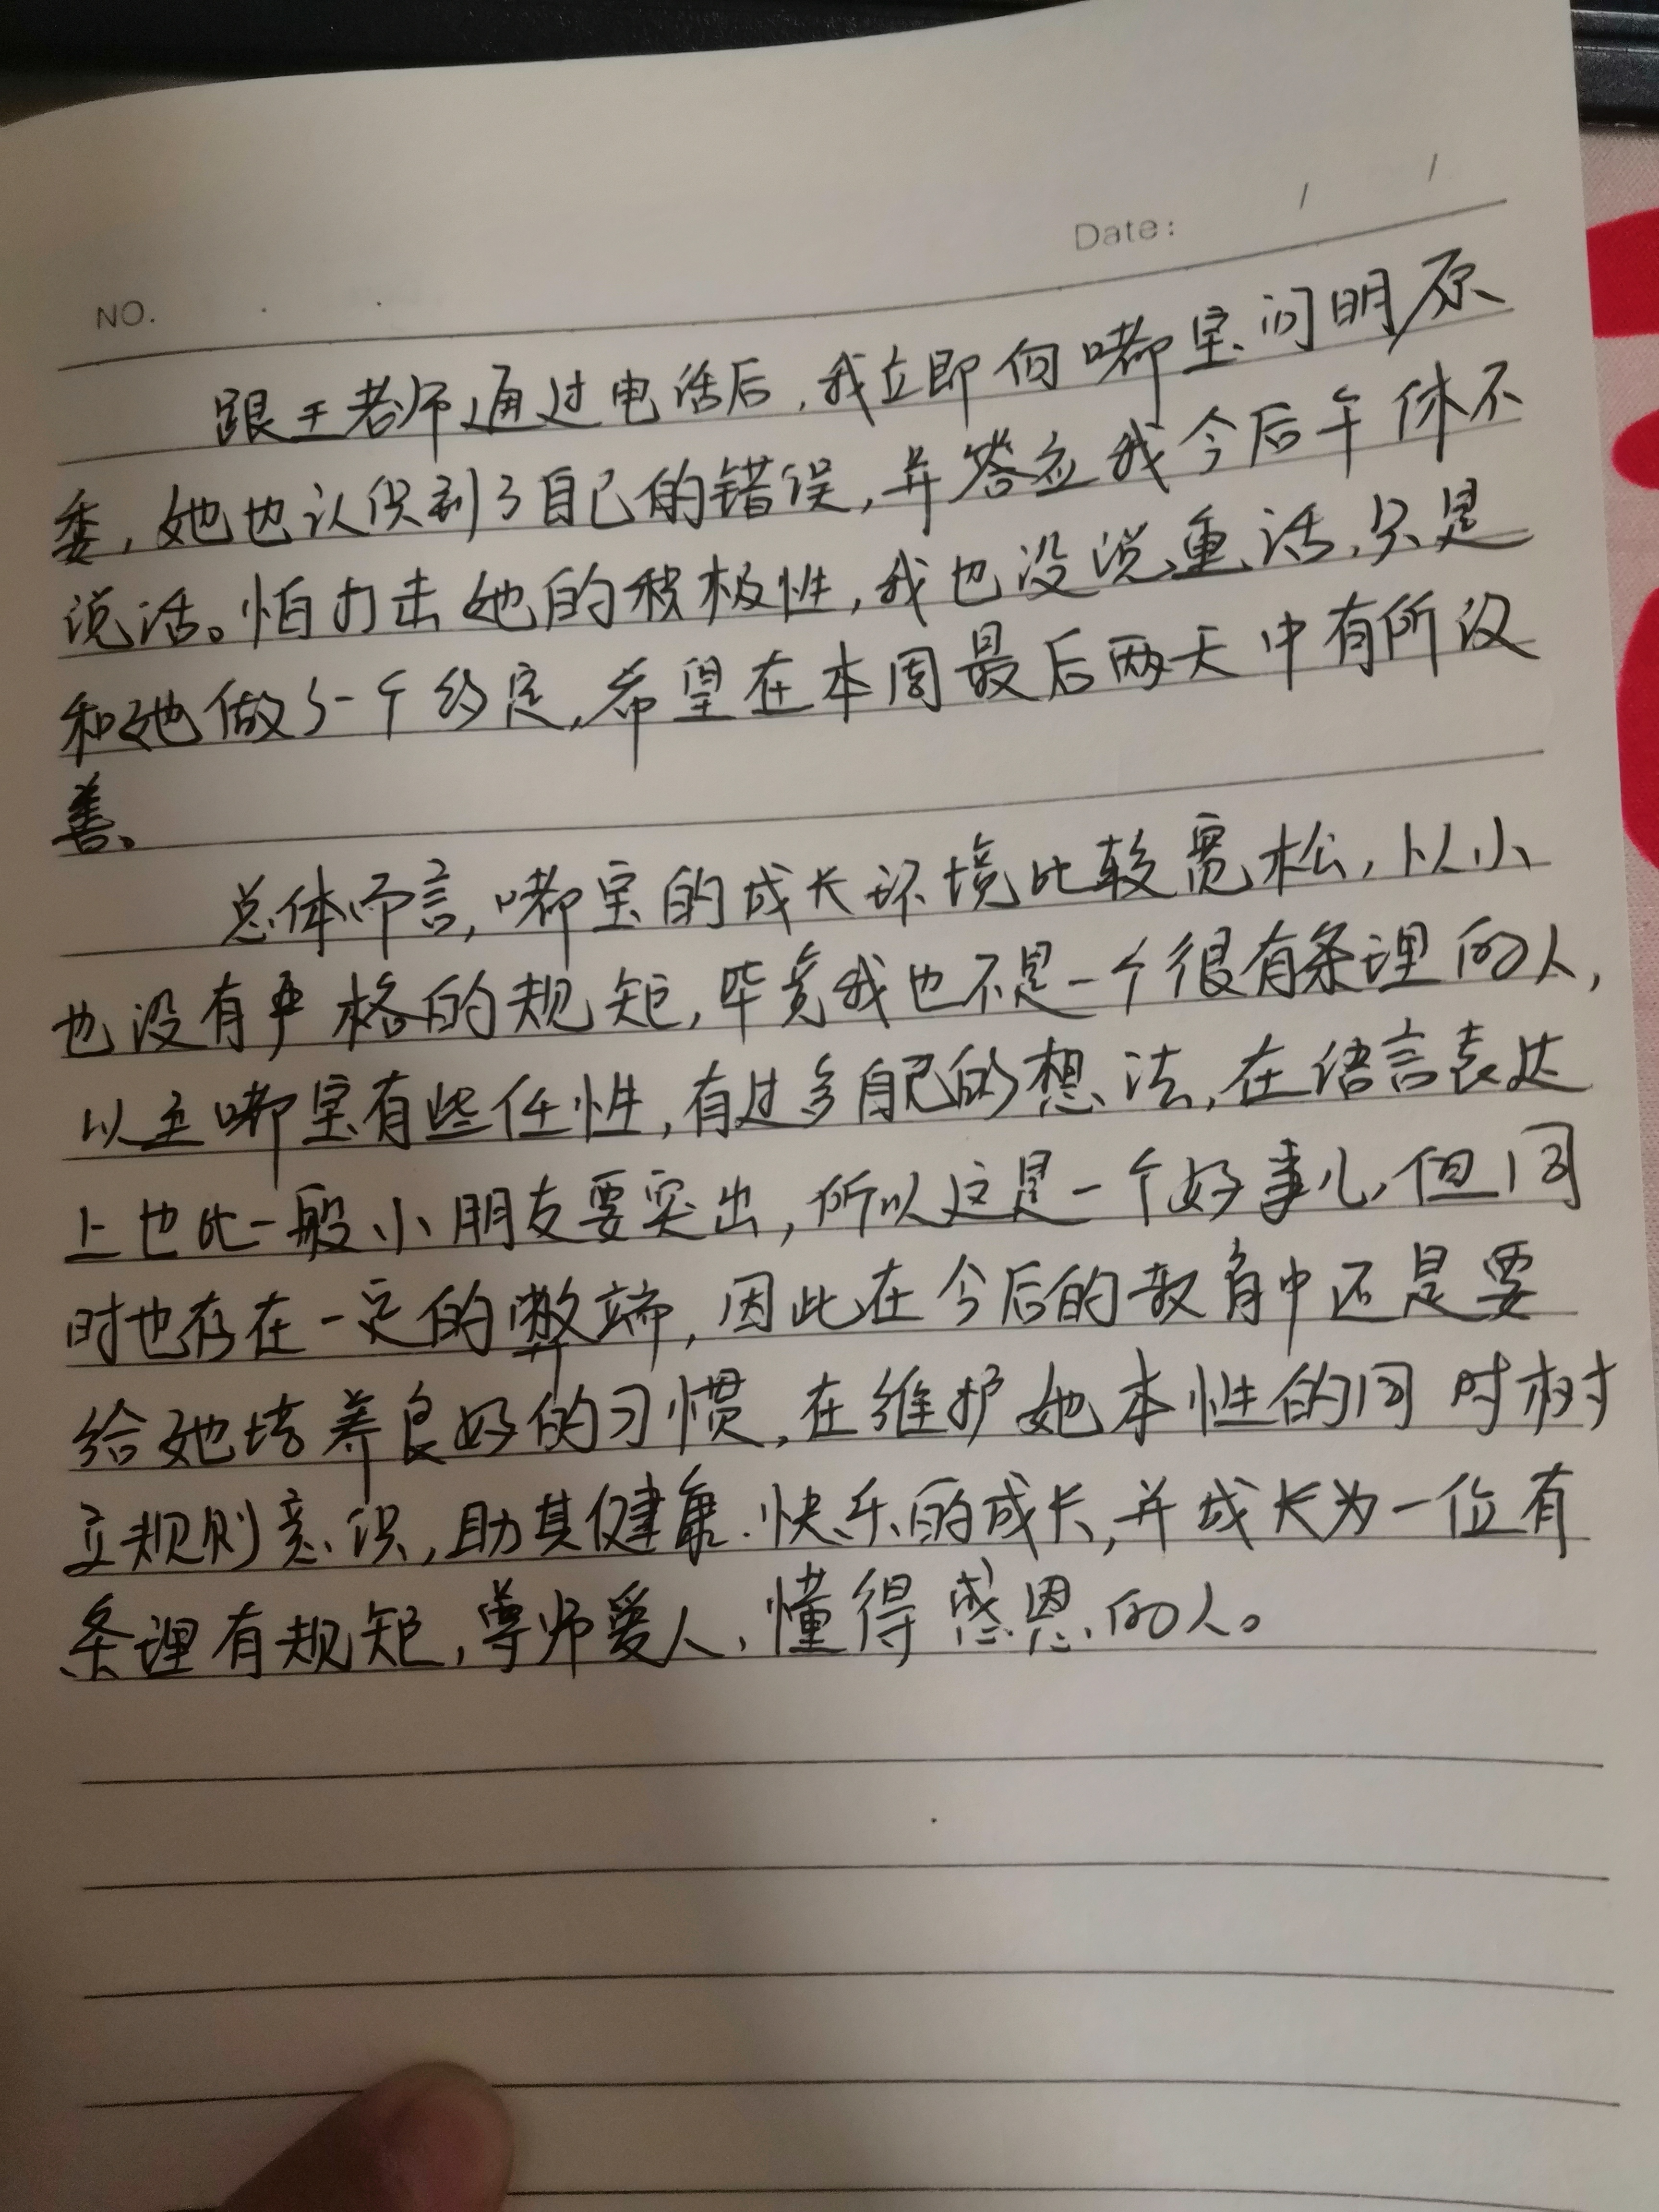 Date: / /
NO.
跟王老师通过电话后,我立即向嘟宝问明原
委,她也认识到了自己的错误,并答应我今后午休不
说话。怕打击她的积极性,我也没说重话,只是
和她做了一个约定,希望在本周最后两天中有所改
善。
总体而言,嘟宝的成长环境比较宽松,从小
也没有严格的规矩,毕竟我也不是一个很有条理的人,
以至嘟宝有些任性,有过多自己的想法,在语言表达
上也比一般小朋友要突出,所以这是一个好事儿,但同
时也存在一定的弊端,因此在今后的教育中还是要
给她培养良好的习惯,在维护她本性的同时树
立规则意识,助其健康、快乐的成长,并成长为一位有
条理有规矩,尊师爱人、懂得感恩的人。